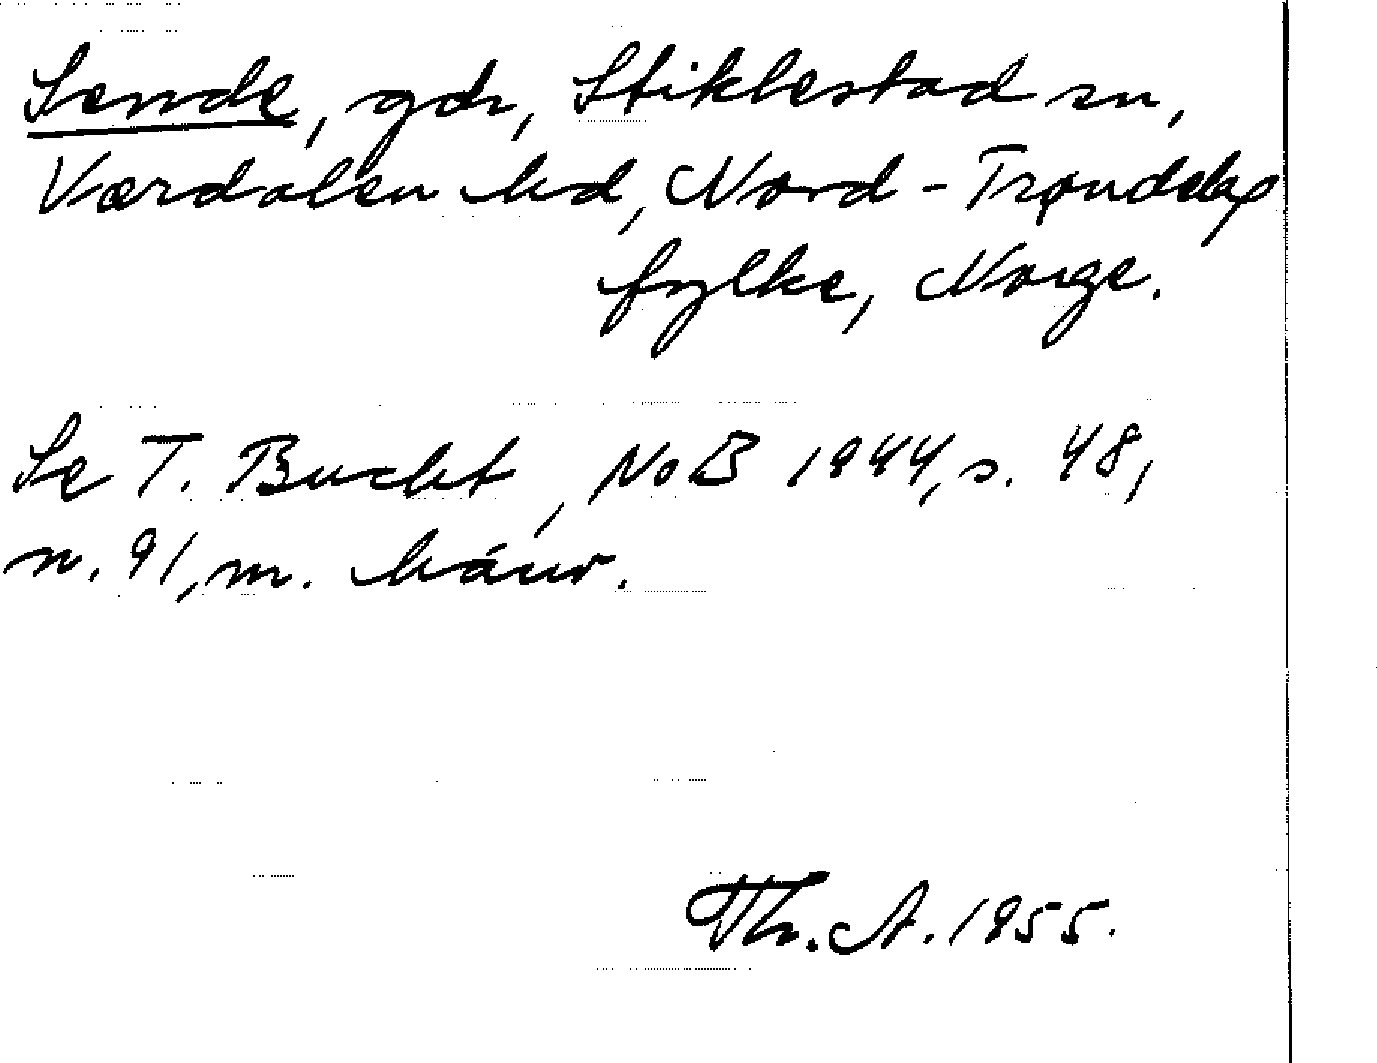 Sende, gdr, Stiklestad sn,
Værdalen hd, Nord-Trøndelag
fylke, Norge.
Se T. Bucht, NoB 1944, s. 48,
n. 91, m. hänv.
Th. A. 1955.